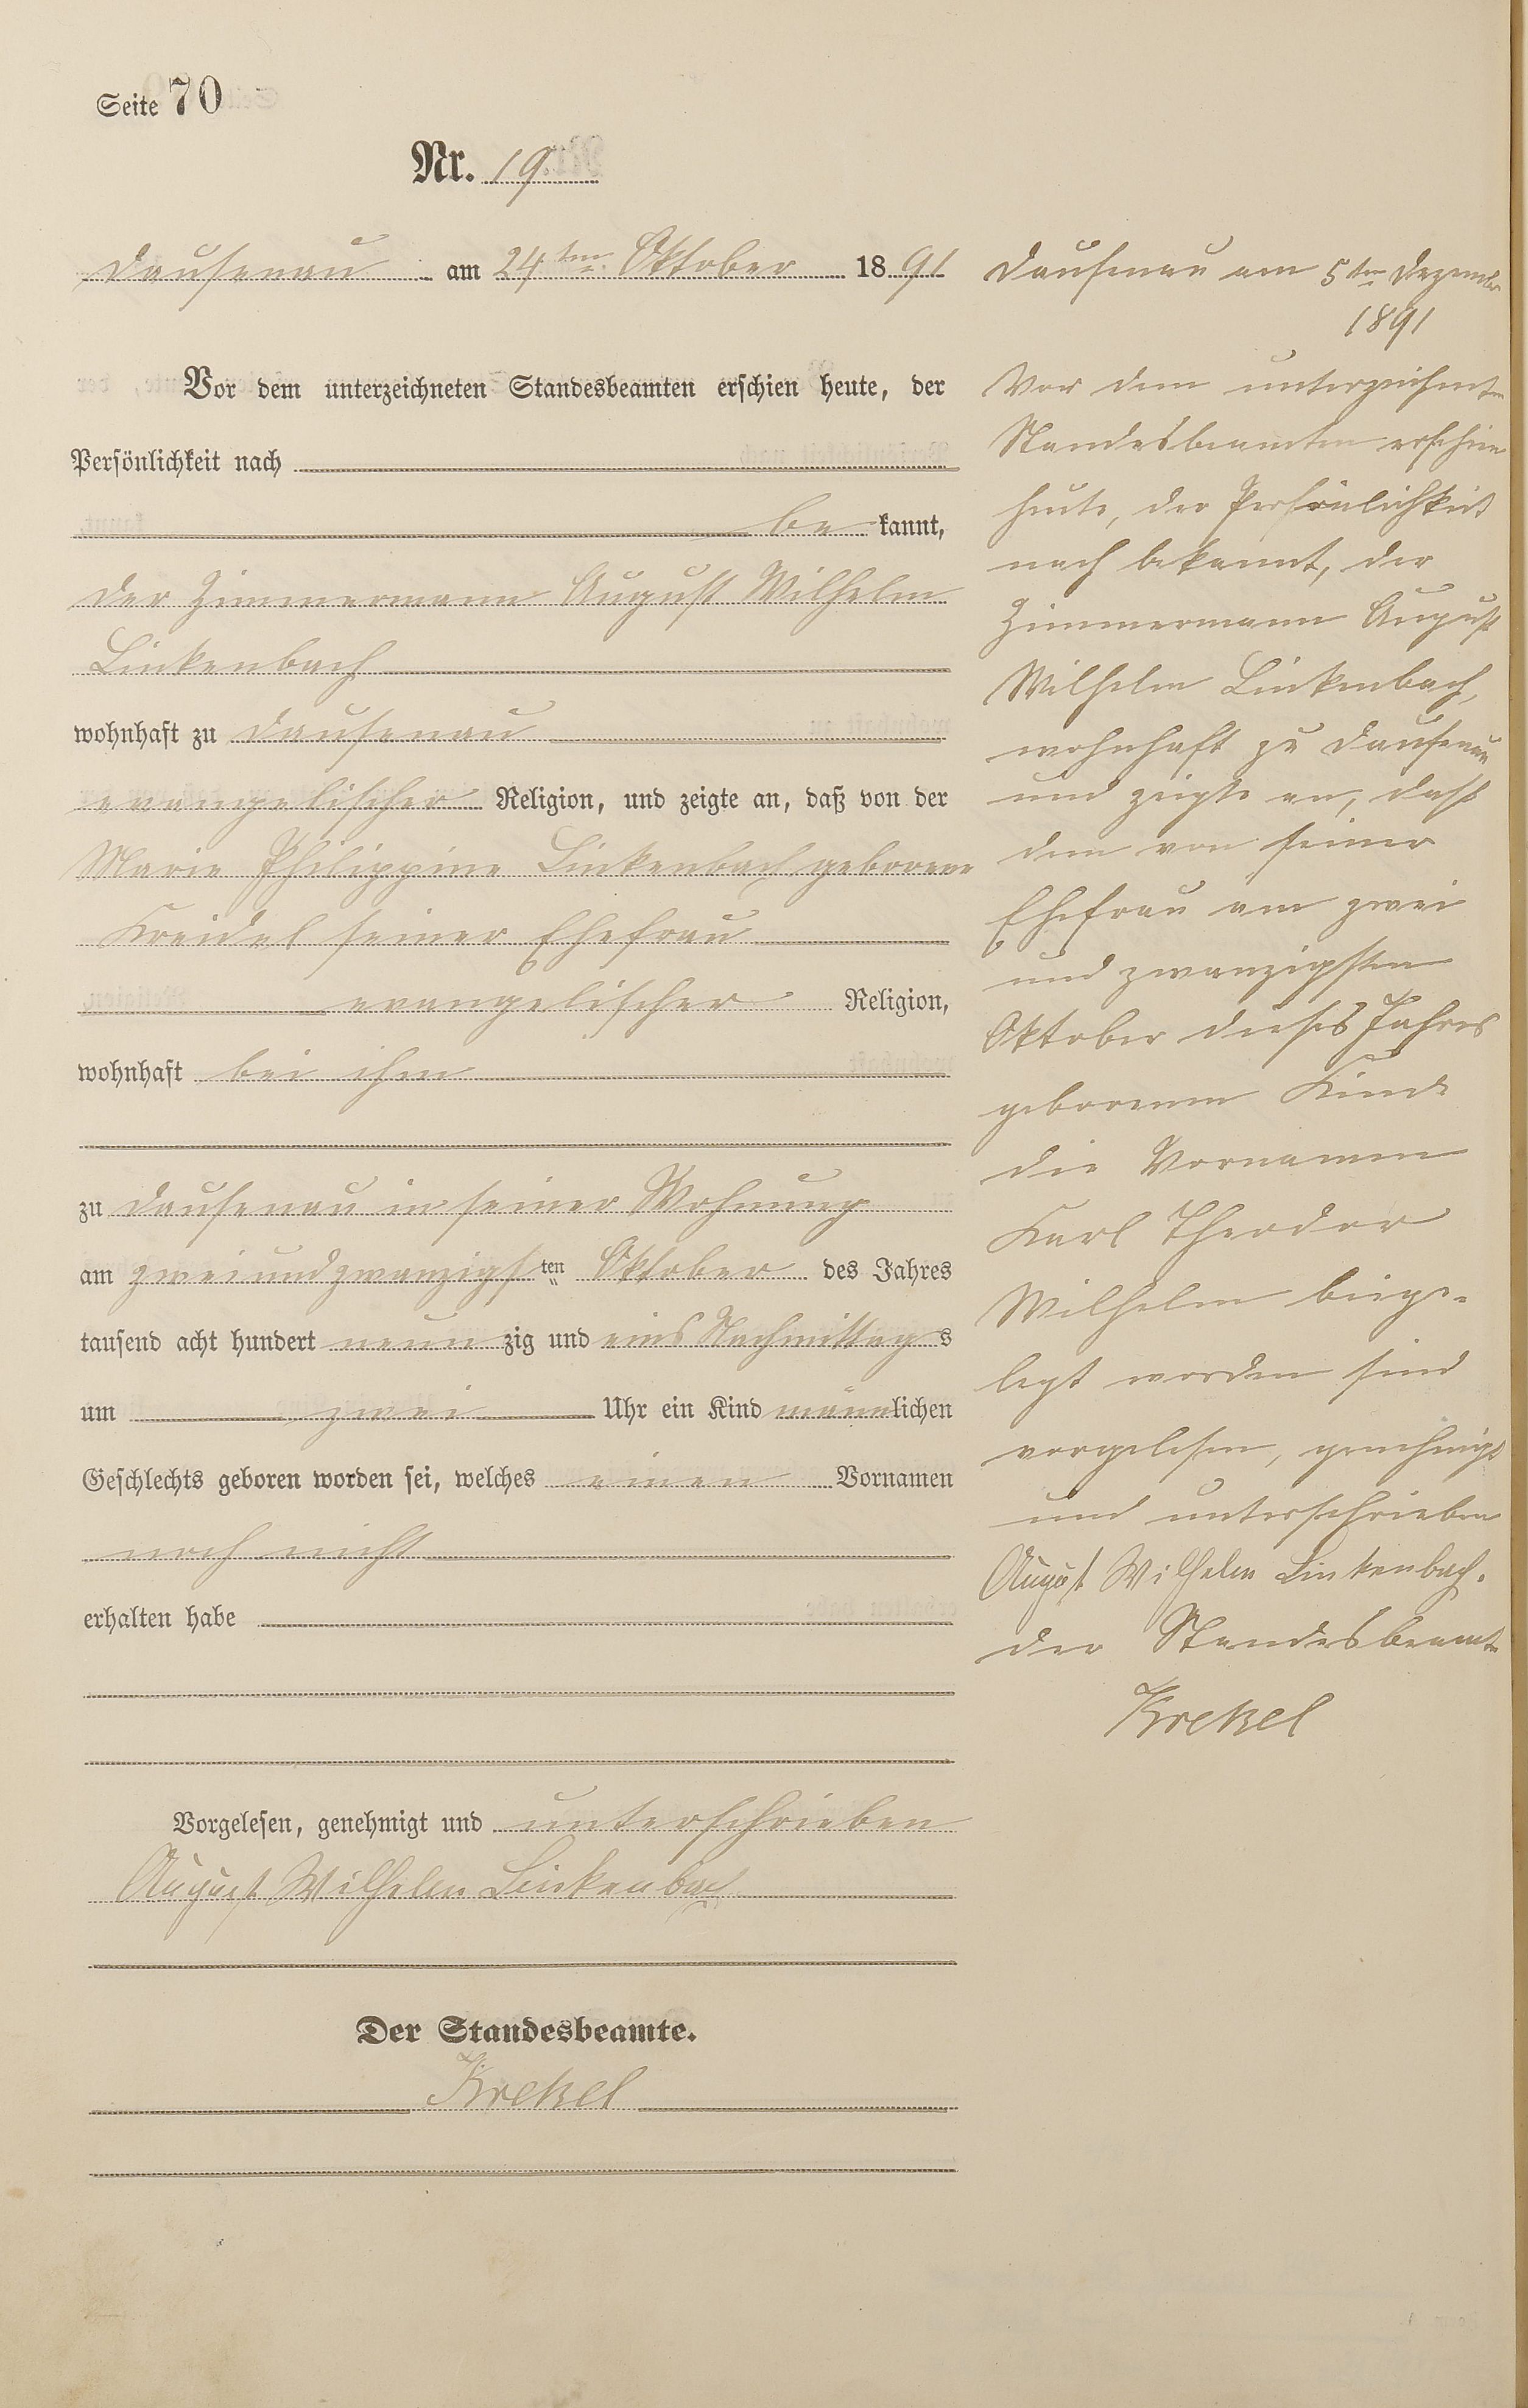 Seite 70
Nr. 19.
Dausenau am 24ten Oktober 1891
Vor dem unterzeichneten Standesbeamten erschien heute, der
Persönlichkeit nach
be kannt,
der Zimmermann August Wilhelm
Linkenbach
wohnhaft zu Dausenau
evangelischer Religion, und zeigte an, daß von der
Marie Philippine Linkenbach geborene
Kreidel seiner Ehefrau
evangelischer Religion,
wohnhaft bei ihm
zu Dausenau in seiner Wohnung
am zweiundzwanzigsten Oktober des Jahres
tausend acht hundert neunzig und eins Nachmittags
um zwei Uhr ein Kind männlichen
Geschlechts geboren worden sei, welches einen Vornamen
noch nicht
erhalten habe
Vorgelesen, genehmigt und unterschrieben
August Wilhelm Linkenbach
Der Standesbeamte.
Krekel
Dausenau am 5ten Dezember
1891
Vor dem unterzeichneten
Standesbeamten erschien
heute, der Persönlichkeit
nach bekannt, der
Zimmermann August
Wilhelm Linkenbach,
wohnhaft zu Dausenau
und zeigte an, daß
dem von seiner
Ehefrau am zwei
und zwanzigsten
Oktober dieses Jahres
geborenen Kinde
die Vornamen
Karl Theodor
Wilhelm beige-
legt worden sind
vorgelesen, genehmigt
und unterschrieben
August Wilhelm Linkenbach.
der Standesbeamte
Krekel